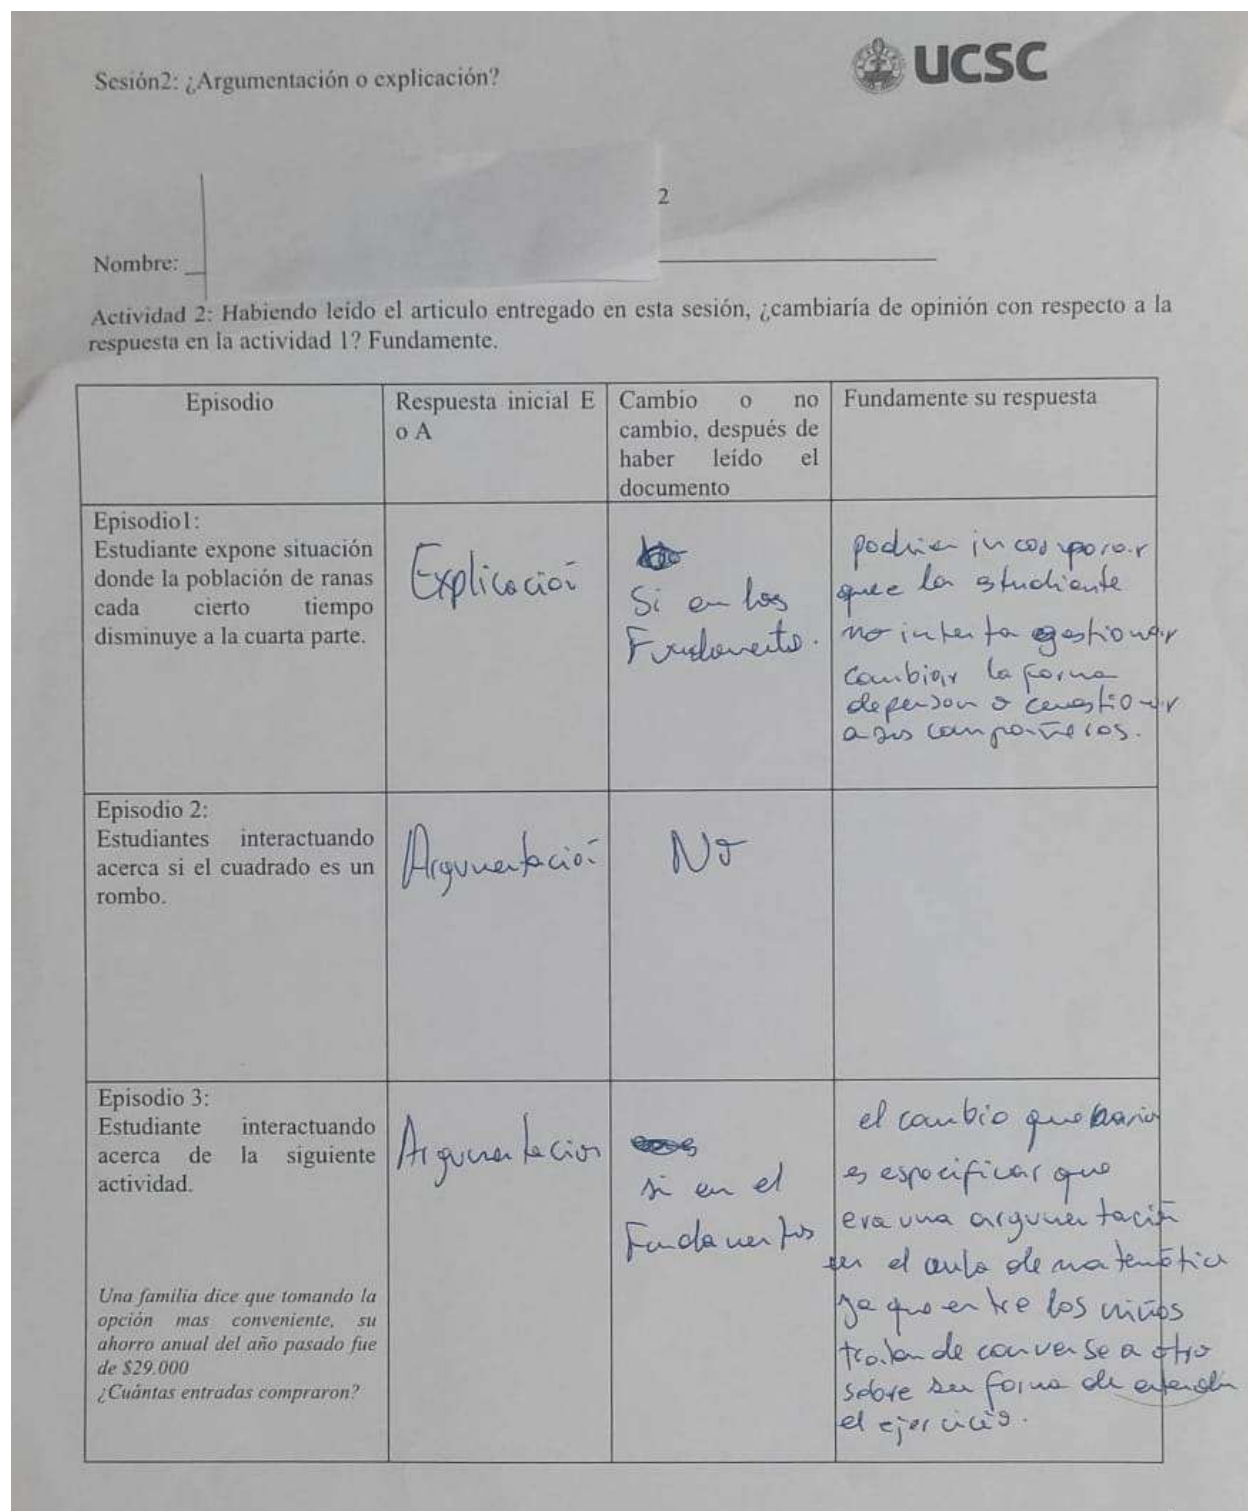 UCSC
Sesión2: ¿Argumentación o explicación?
2
Nombre:
Actividad 2: Habiendo leído el articulo entregado en esta sesión, ¿cambiaría de opinión con respecto a la
respuesta en la actividad 1? Fundamente.
Episodio
Respuesta inicial E
o A
Cambio o no
cambio, después de
haber leído el
documento
Fundamente su respuesta
Episodio1:
Estudiante expone situación
donde la población de ranas
cada cierto tiempo
disminuye a la cuarta parte.
Explicación
Si en los
Fundamento.
podria incorporar
que la estudiante
no intenta gestionar
cambiar la forma
de pensar o cuestionar
a sus compañeros.
Episodio 2:
Estudiantes interactuando
acerca si el cuadrado es un
rombo.
Argumentación
No
Episodio 3:
Estudiante interactuando
acerca de la siguiente
actividad.
Una familia dice que tomando la
opción mas conveniente, su
ahorro anual del año pasado fue
de $29.000
¿Cuántas entradas compraron?
Argumentacion
si en el
Fundamentos
el cambio que haria
es especificar que
era una argumentación
en el aula de matemática
ya que entre los niños
tratan de a otro
sobre su forma de entender
el ejercicio.